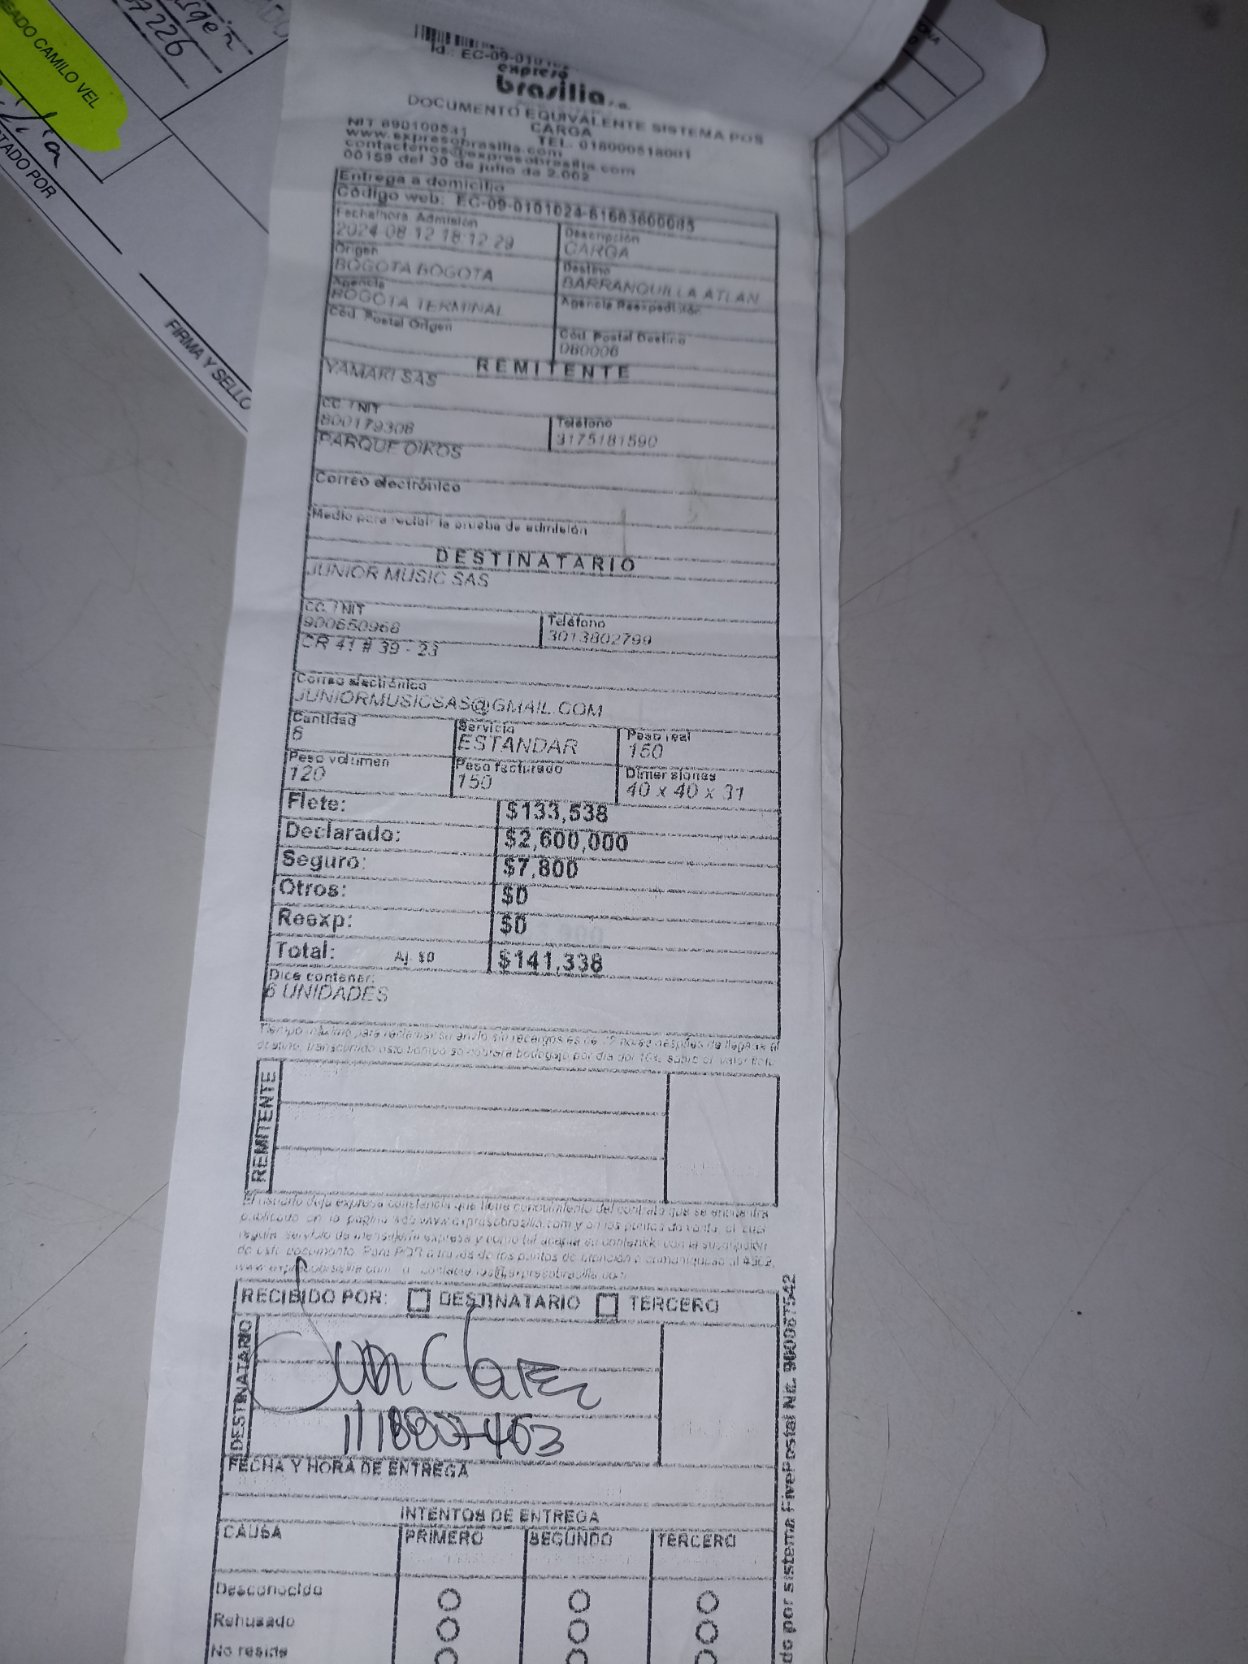 EADO CAMILO VEL
TADO POR
FIRMA Y SELLO
Id.: EC-09-010102
expreso
brasilia s.a.
DOCUMENTO EQUIVALENTE SISTEMA POS
CARGA
NIT 890100531 TEL. 018000518001
www.expresobrasilia.com
contactenos@expresobrasilia.com
00159 del 30 de julio de 2.002
Entrega a domicilio
Código web: EC-09-0101024-61683600085
Fecha/hora Admisión Descripción
2024-08-12 18:12:29 CARGA
Origen Destino
BOGOTA BOGOTA BARRANQUILLA ATLAN
Agencia Agencia Reexpedidor
BOGOTA TERMINAL
Cód. Postal Origen Cód. Postal Destino
080006
REMITENTE
YAMAKI SAS
CC. / NIT Teléfono
800179306 3175181590
PARQUE OIKOS
Correo electrónico
Medio para recibir la prueba de admisión
DESTINATARIO
JUNIOR MUSIC SAS
CC. / NIT Teléfono
900650966 3013802799
CR 41 # 39 - 23
Correo electrónico
JUNIORMUSICSAS@GMAIL.COM
Cantidad Servicio Peso real
6 ESTANDAR 150
Peso volumen Peso facturado Dimensiones
120 150 40 x 40 x 31
Flete: $133,538
Declarado: $2,600,000
Seguro: $7,800
Otros: $0
Reexp: $0
Total: Aj. $0 $141,338
Dice contener:
6 UNIDADES
Tiempo máximo para reclamar su envío sin recargos es de 72 horas después de llegada al
destino, transcurrido este tiempo se cobrara bodegaje por día del 10% sobre el valor
REMITENTE
El usuario deja expresa constancia que tiene conocimiento del contrato que se encuentra
publicado en la página web www.expresobrasilia.com y en los puntos de venta, el cual
regula servicio de mensajería expresa y como tal acepta su contenido con la suscripción
de este documento. Para PQR a través de los puntos de atención o comuníquese al
www.expresobrasilia.com
RECIBIDO POR: DESTINATARIO TERCERO
DESTINATARIO
FECHA Y HORA DE ENTREGA
INTENTOS DE ENTREGA
CAUSA PRIMERO SEGUNDO TERCERO
Desconocido
Rehusado
No reside
do por sistema FivePostal Nit. 900087542